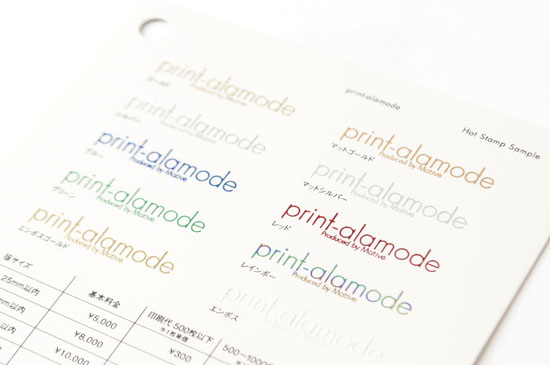 print-alamode
Hot Stamp Sample
print-alamode
Produced by Mative
ゴールド
print-alamode
Produced by Mative
シルバー
print-alamode
Produced by Mative
ブルー
print-alamode
Produced by Mative
グリーン
print-alamode
Produced by Mative
エンボスゴールド
print-alamode
Produced by Mative
マットゴールド
print-alamode
Produced by Mative
マットシルバー
print-alamode
Produced by Mative
レッド
print-alamode
Produced by Mative
レインボー
print-alamode
エンボス
版サイズ
基本料金
印刷代 500枚以下
※1枚単価
500~1000
25mm以内
¥5,000
mm以内
¥8,000
¥300
以内
¥10,000